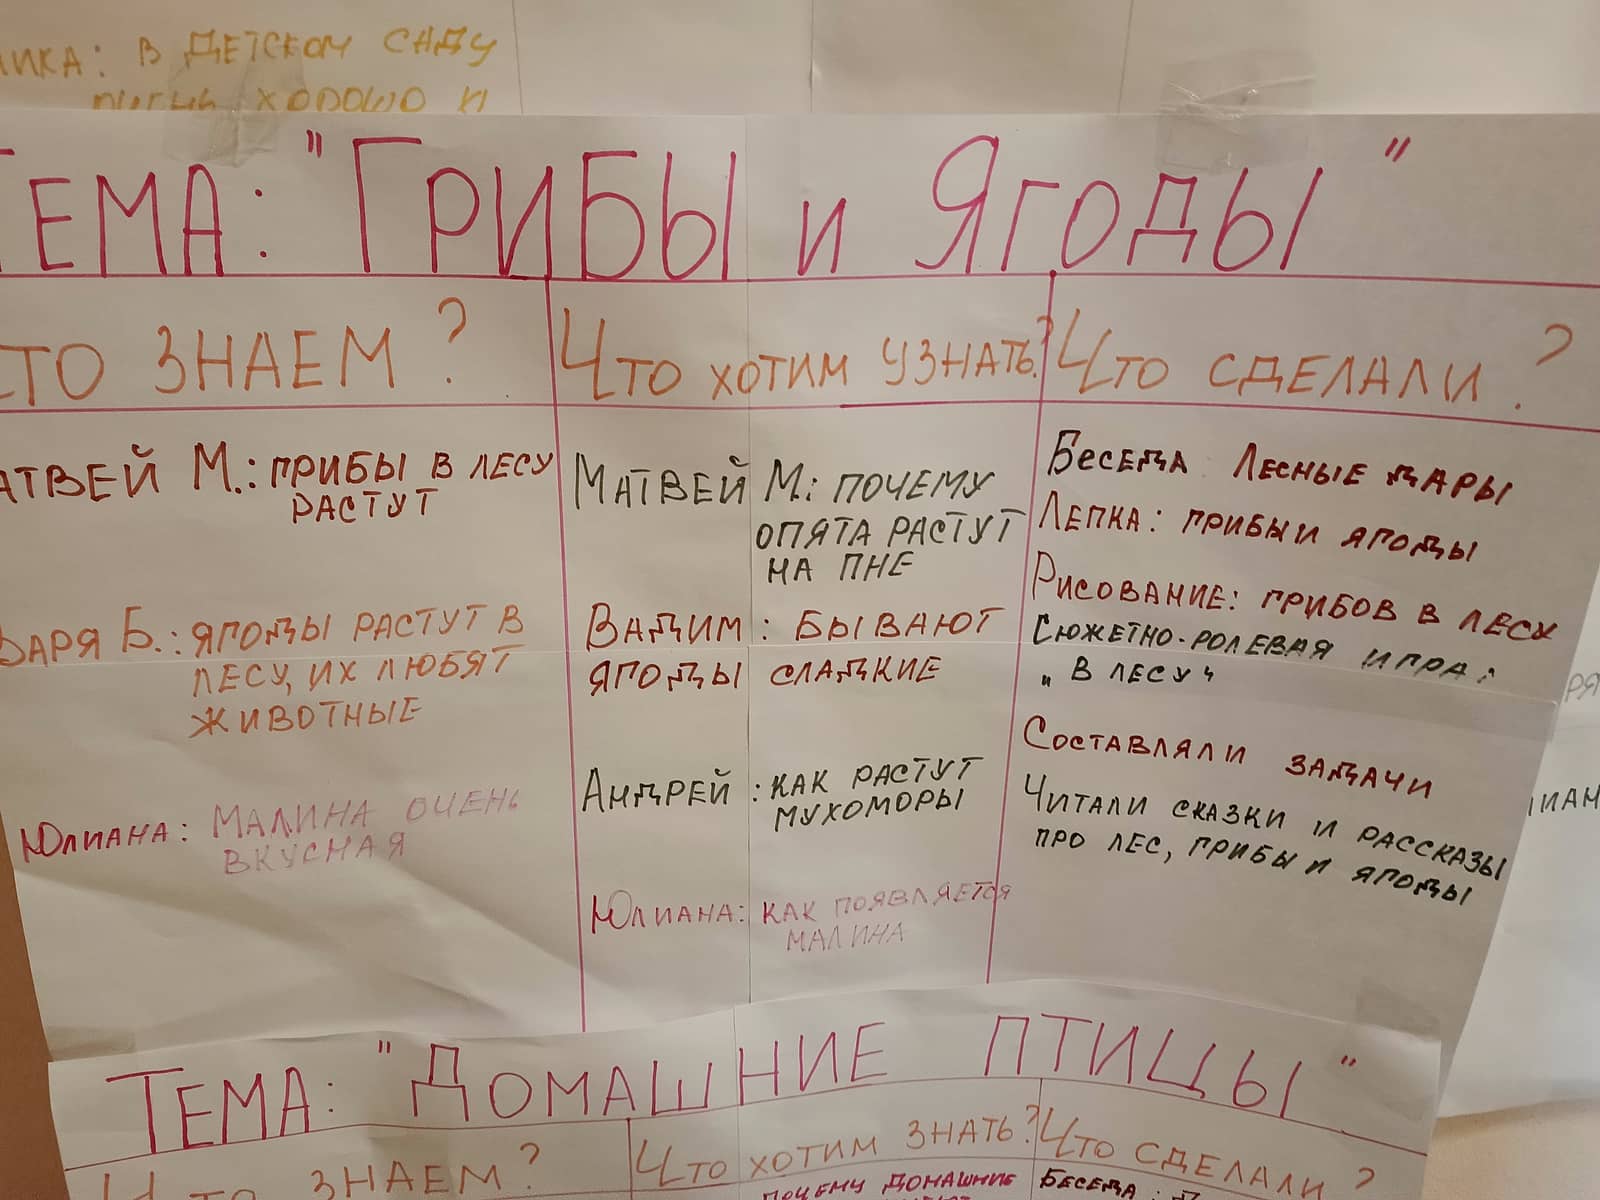 ИКА: В ДЕТСКОМ САДУ
ХОРОШО И
ТЕМА: "ГРИБЫ И ЯГОДЫ"
ТО ЗНАЕМ?
АТВЕЙ М.: ГРИБЫ В ЛЕСУ
РАСТУТ
ВАРЯ Б.: ЯГОДЫ РАСТУТ В
ЛЕСУ, ИХ ЛЮБЯТ
ЖИВОТНЫЕ
ЮЛИАНА: МАЛИНА ОЧЕНЬ
ВКУСНАЯ
ЧТО ХОТИМ УЗНАТЬ?
МАТВЕЙ М.: ПОЧЕМУ
ОПЯТА РАСТУТ
НА ПНЕ
ВАДИМ: БЫВАЮТ
ЯГОДЫ СЛАДКИЕ
АНДРЕЙ: КАК РАСТУТ
МУХОМОРЫ
ЮЛИАНА: КАК ПОЯВЛЯЕТСЯ
МАЛИНА
ЧТО СДЕЛАЛИ?
БЕСЕДА ЛЕСНЫЕ ДАРЫ
ЛЕПКА: ГРИБЫ И ЯГОДЫ
РИСОВАНИЕ: ГРИБОВ В ЛЕСУ
СЮЖЕТНО-РОЛЕВАЯ ИГРА:
„В ЛЕСУ"
СОСТАВЛЯЛИ ЗАДАЧИ
ЧИТАЛИ СКАЗКИ И РАССКАЗЫ
ПРО ЛЕС, ГРИБЫ И ЯГОДЫ
ТЕМА: "ДОМАШНИЕ ПТИЦЫ"
ЧТО ЗНАЕМ?
ЧТО ХОТИМ ЗНАТЬ?
ПОЧЕМУ ДОМАШНИЕ
ЧТО СДЕЛАЛИ?
БЕСЕДА: